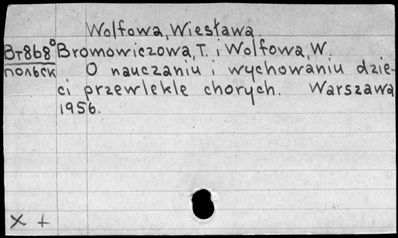 Wolfowa, Wiesława.
Вт868⁰ Bromowiczowa, T. i Wolfowa, W.
польск O nauczaniu i wychowaniu dzie-
ci przewlekle chorych. Warszawa,
1956.
x +